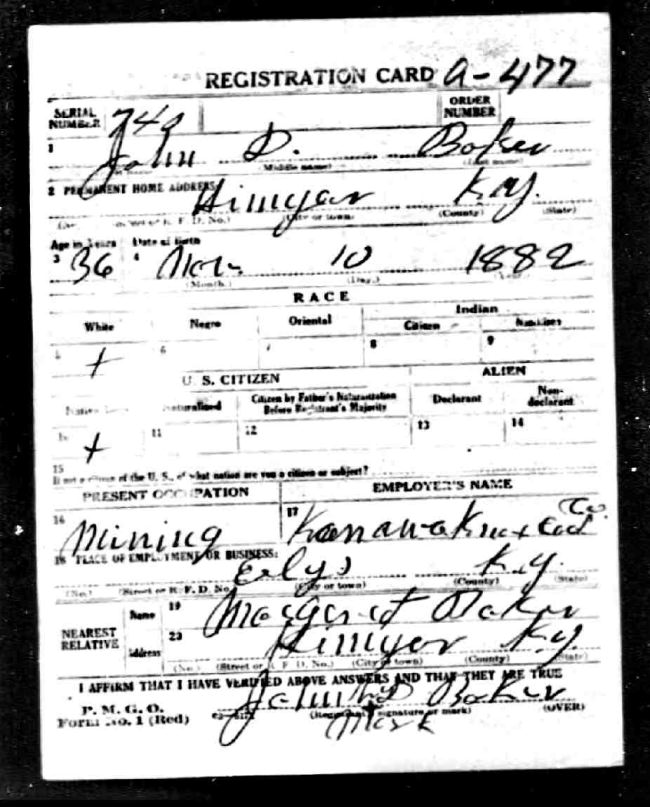 REGISTRATION CARD A-477
SERIAL NUMBER 740 ORDER NUMBER
1 John D. Baker
(Middle name) (Last name)
2 PERMANENT HOME ADDRESS: Himyar Ky.
(No.) (Street or R. F. D. No.) (City or town) (County) (State)
Age in Years Date of Birth
3 36 4 Nov. 10 1882
(Month.) (Day.) (Year.)
RACE
White Negro Oriental Indian
Citizen Noncitizen
5 X 6 7 8 9
U. S. CITIZEN ALIEN
Native Born Naturalized Citizen by Father's Naturalization Before Registrant's Majority Declarant Non-declarant
10 X 11 12 13 14
15 If not a citizen of the U. S., of what nation are you a citizen or subject?
PRESENT OCCUPATION EMPLOYER'S NAME
16 Mining 17 Co.
18 PLACE OF EMPLOYMENT OR BUSINESS:
Elys Ky.
(No.) (Street or R. F. D. No.) (City or town) (County) (State)
NEAREST RELATIVE
Name 19 Margaret Baker
Address 20 Himyar Ky.
(No.) (Street or R. F. D. No.) (City or town) (County) (State)
I AFFIRM THAT I HAVE VERIFIED ABOVE ANSWERS AND THAT THEY ARE TRUE
P. M. G. O.
Form No. 1 (Red) John D Baker
(Registrant's signature or mark) (OVER)
Mark